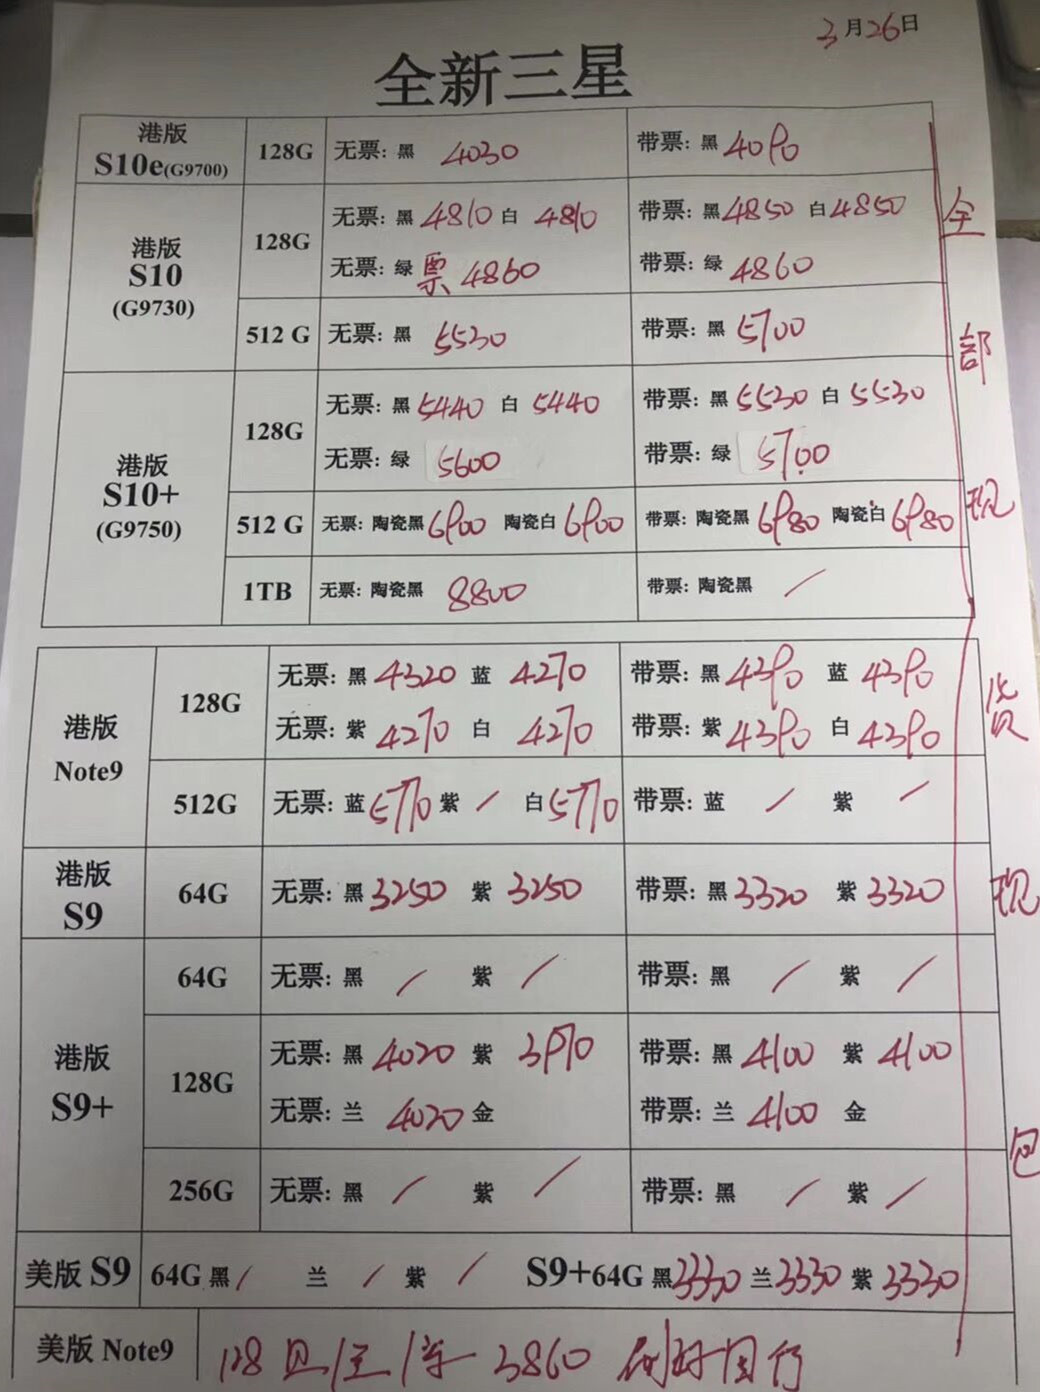 3月26日
全新三星
港版 S10e(G9700) 128G 无票: 黑 4030 带票: 黑 4090
港版 S10 (G9730) 128G 无票: 黑 4810 白 4810 带票: 黑 4850 白 4850
无票: 绿 票 4860 带票: 绿 4860
512 G 无票: 黑 5530 带票: 黑 5700
港版 S10+ (G9750) 128G 无票: 黑 5440 白 5440 带票: 黑 5530 白 5530
无票: 绿 5600 带票: 绿 5700
512 G 无票: 陶瓷黑 6900 陶瓷白 6900 带票: 陶瓷黑 6980 陶瓷白 6980
1TB 无票: 陶瓷黑 8800 带票: 陶瓷黑 /
港版 Note9 128G 无票: 黑 4320 蓝 4270 带票: 黑 4390 蓝 4390
无票: 紫 4270 白 4270 带票: 紫 4390 白 4390
512G 无票: 蓝 5770 紫 / 白 5770 带票: 蓝 / 紫 /
港版 S9 64G 无票: 黑 3250 紫 3250 带票: 黑 3320 紫 3320
港版 S9+ 64G 无票: 黑 / 紫 / 带票: 黑 / 紫 /
128G 无票: 黑 4020 紫 3970 带票: 黑 4100 紫 4100
无票: 兰 4020 金 带票: 兰 4100 金
256G 无票: 黑 / 紫 / 带票: 黑 / 紫 /
美版 S9 64G 黑 / 兰 / 紫 / S9+64G 黑 3330 兰 3330 紫 3330
美版 Note9 128 3860
全部现货现包